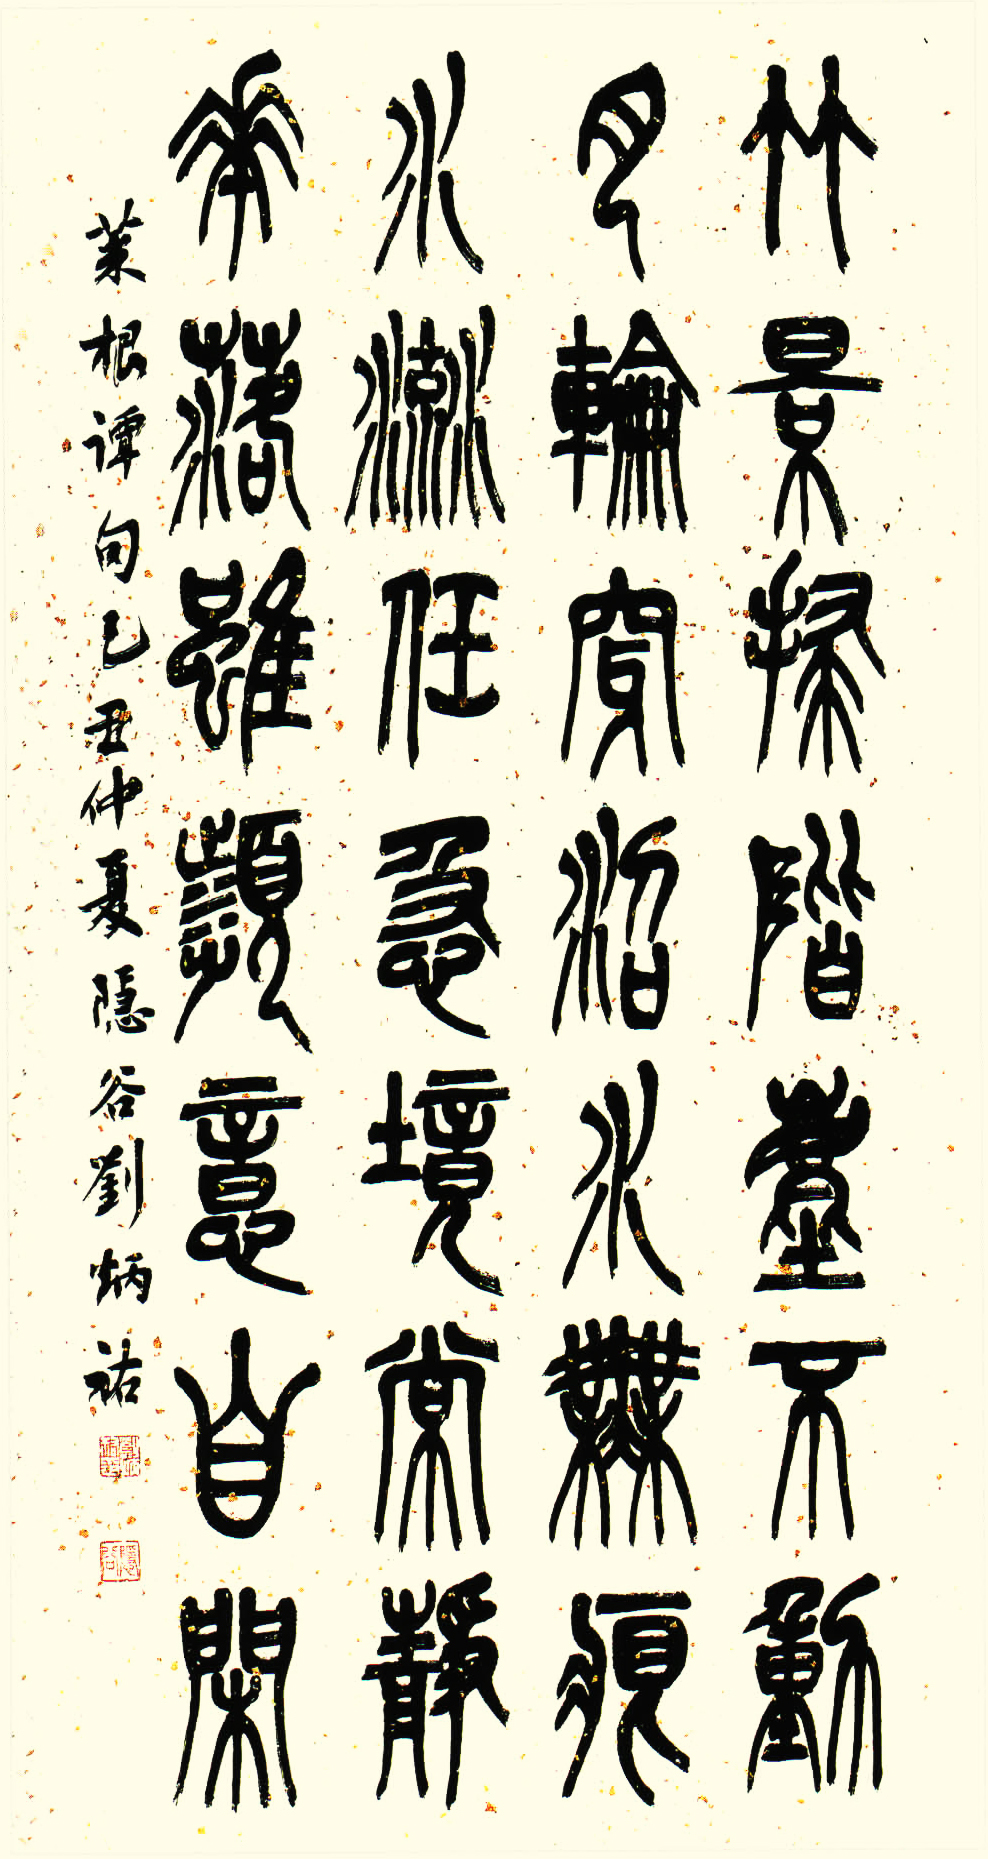 竹景掃階塵不動
月輪穿沼水無痕
水流任急境常靜
華落雖頻意自閑
菜根谭句己丑仲夏隐谷劉炳祐